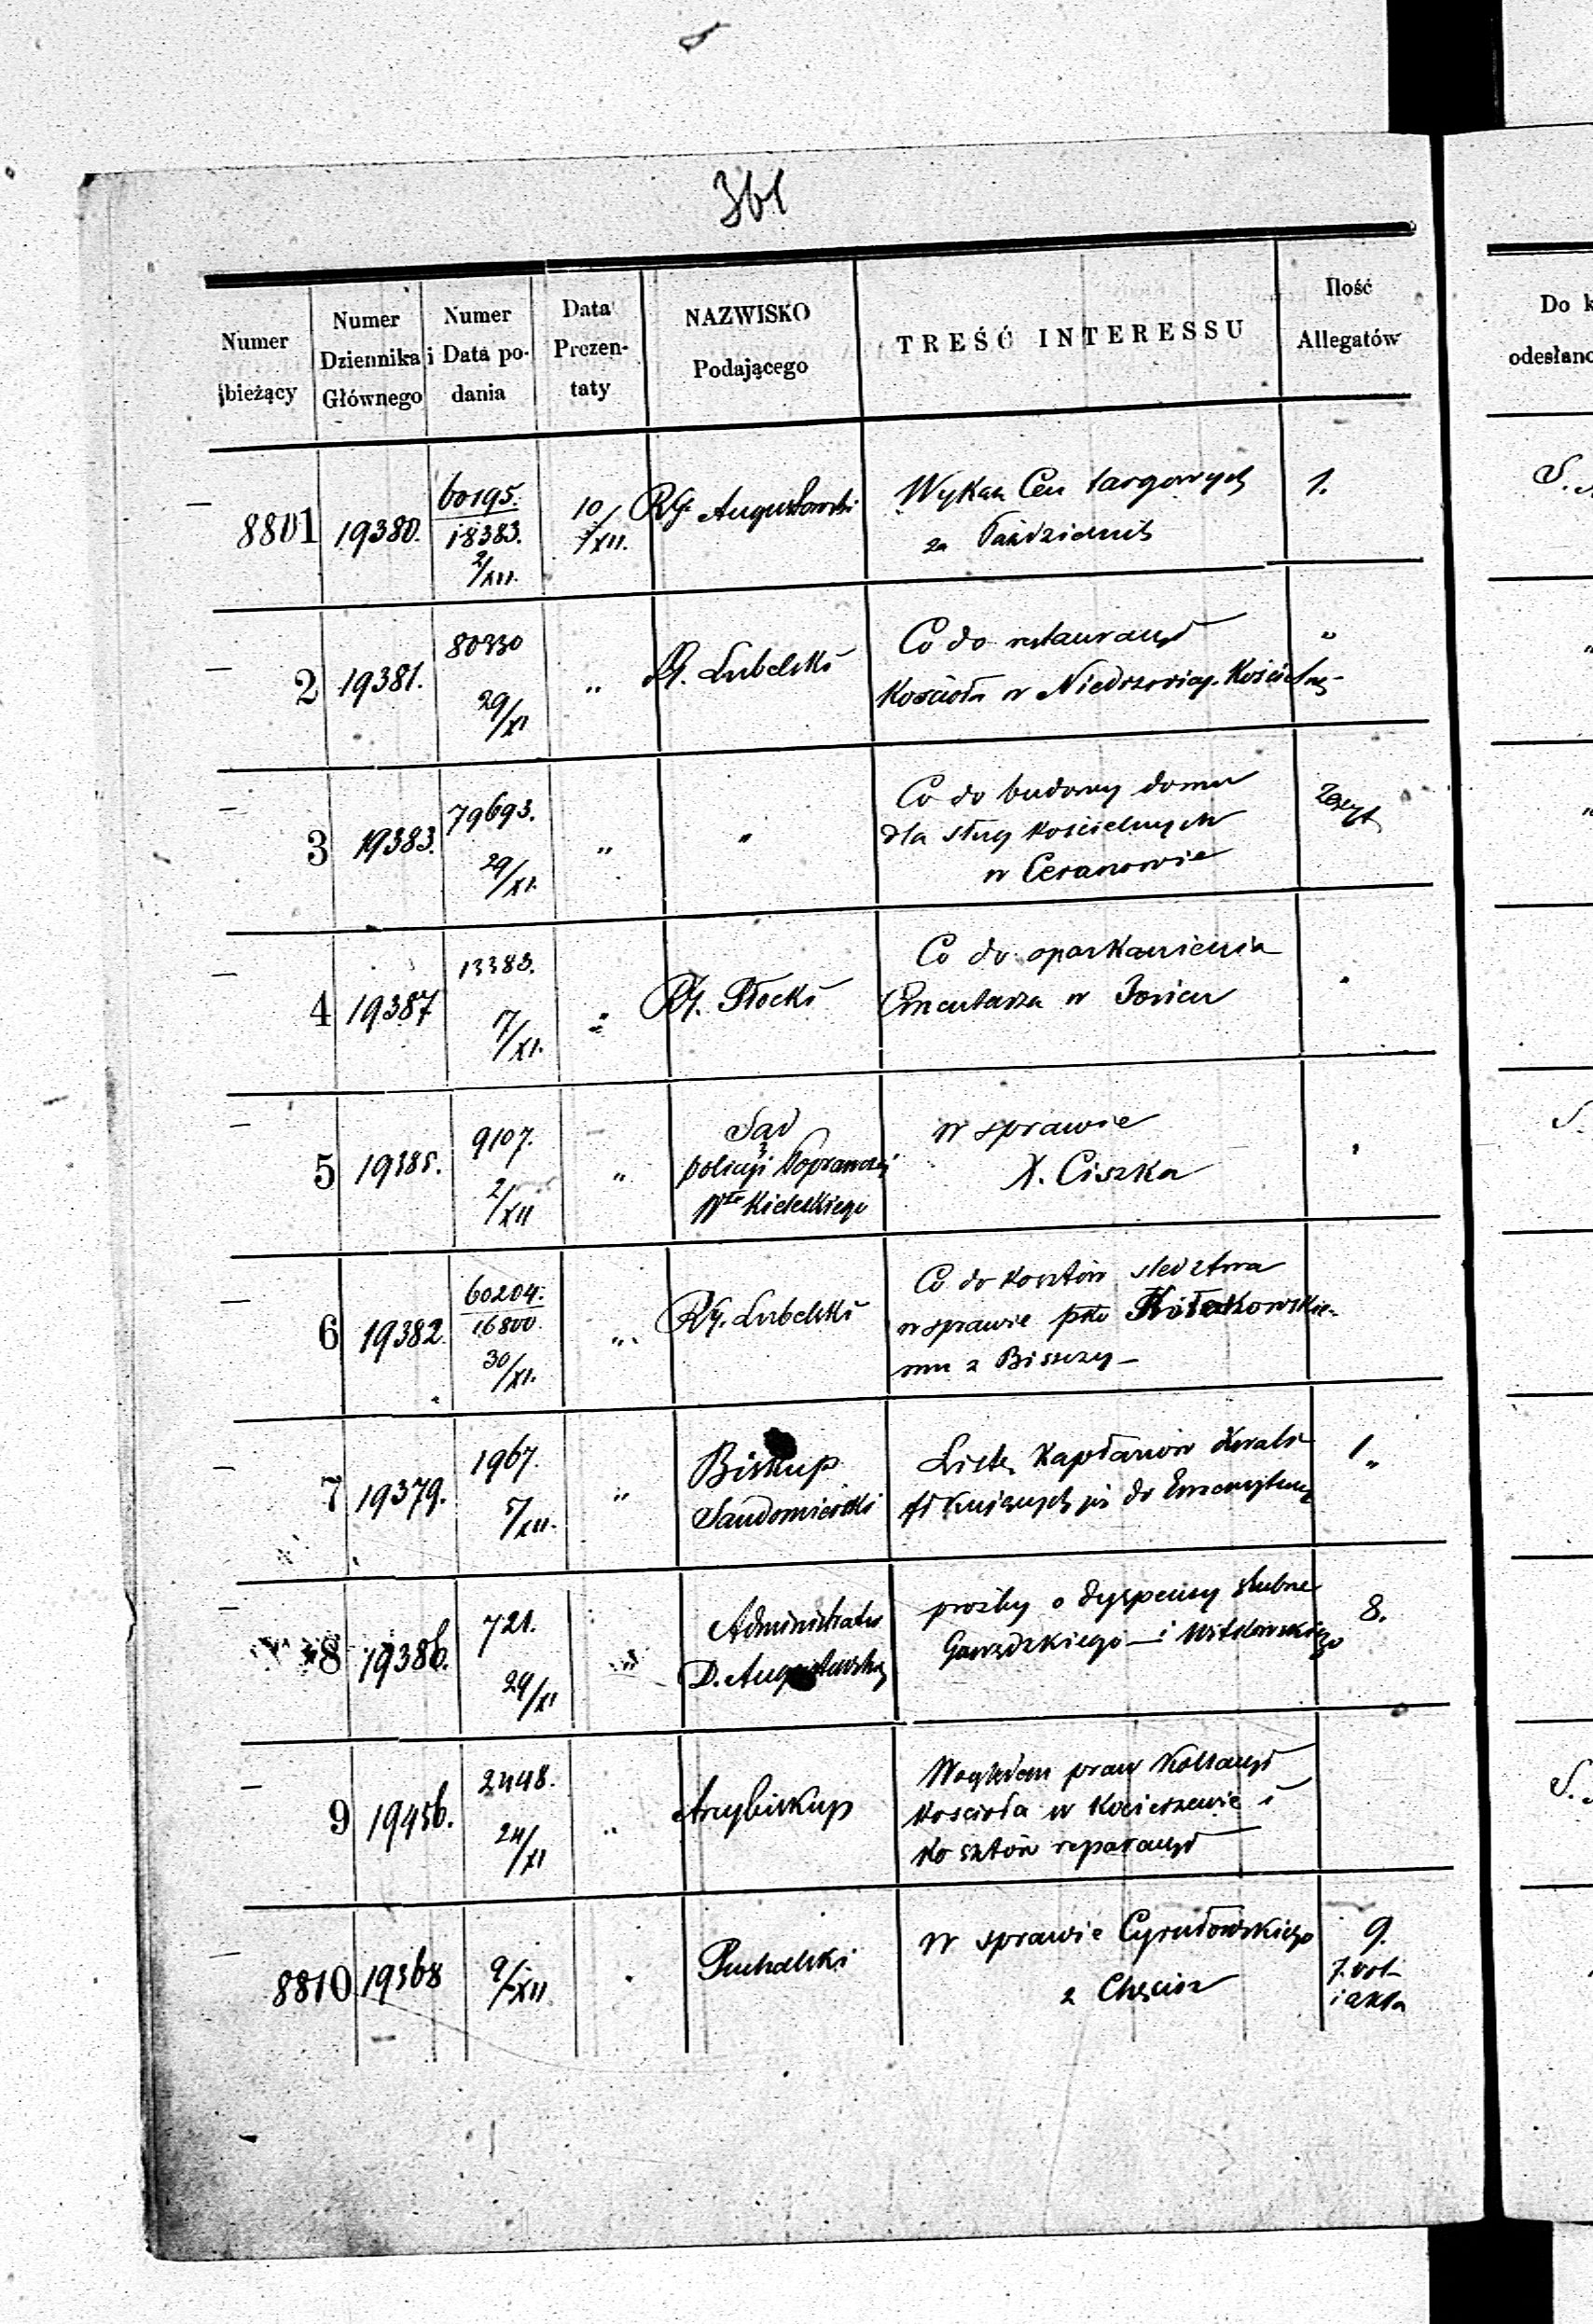 361
Numer bieżący
Numer Dziennika Głównego
Numer i Data podania
Data Prezentaty
NAZWISKO Podającego
TREŚĆ INTERESSU
Ilość Allegatów
Do k
odesłano
8801 19380. 60195. 10/XII. RG. Augustowski Wykaz Cen targowych 1.
18383. za Październik
2/XII.
2 19381. 80330 „ RG. Lubelski Co do restauracyi „
29/XI Kościoła w Niedrzwicy Kościelnej
3 19383. 79693. „ „ Co do budowy domu Zeszyt
29/XI. dla sług kościelnych
w Ceranowie
4 19387 13383. „ RG. Płocki Co do oparkanienia
17/XI. Cmentarza w
5 19385. 9107. „ Sąd w sprawie
2/XII policyi Poprawczej X. Ciszka
Kieleckiego
6 19382 60204. „ RG. Lubelski Co do kosztów śledztwa
16800. w sprawie pko
30/XI. mu z Biszczy
7 19379. 1967. „ Biskup Lista Kapłanów 1
5/XII. Sandomierski do Emerytury
8 19386. 721. „ Administrator prośby o dyspensy ślubne 8.
29/XI D. Augustowskiej i Witkowskiego
9 19456. 2448. „ Arcybiskup Względem praw Kollacyi
24/XI kościoła w Kocierzewie i
kosztów reparacyi
8810 19368 9/XII Puchalski w sprawie Cyrułowskiego 9.
z Chęcin 7. vol.
i akta